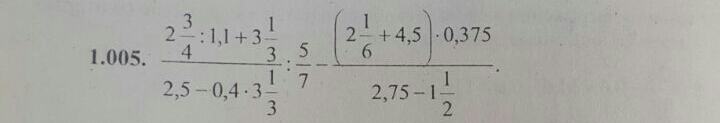 1.005. \frac{2\frac{3}{4} : 1,1 + 3\frac{1}{3}}{2,5 - 0,4 \cdot 3\frac{1}{3}} : \frac{5}{7} - \frac{\left(2\frac{1}{6} + 4,5\right) \cdot 0,375}{2,75 - 1\frac{1}{2}}.